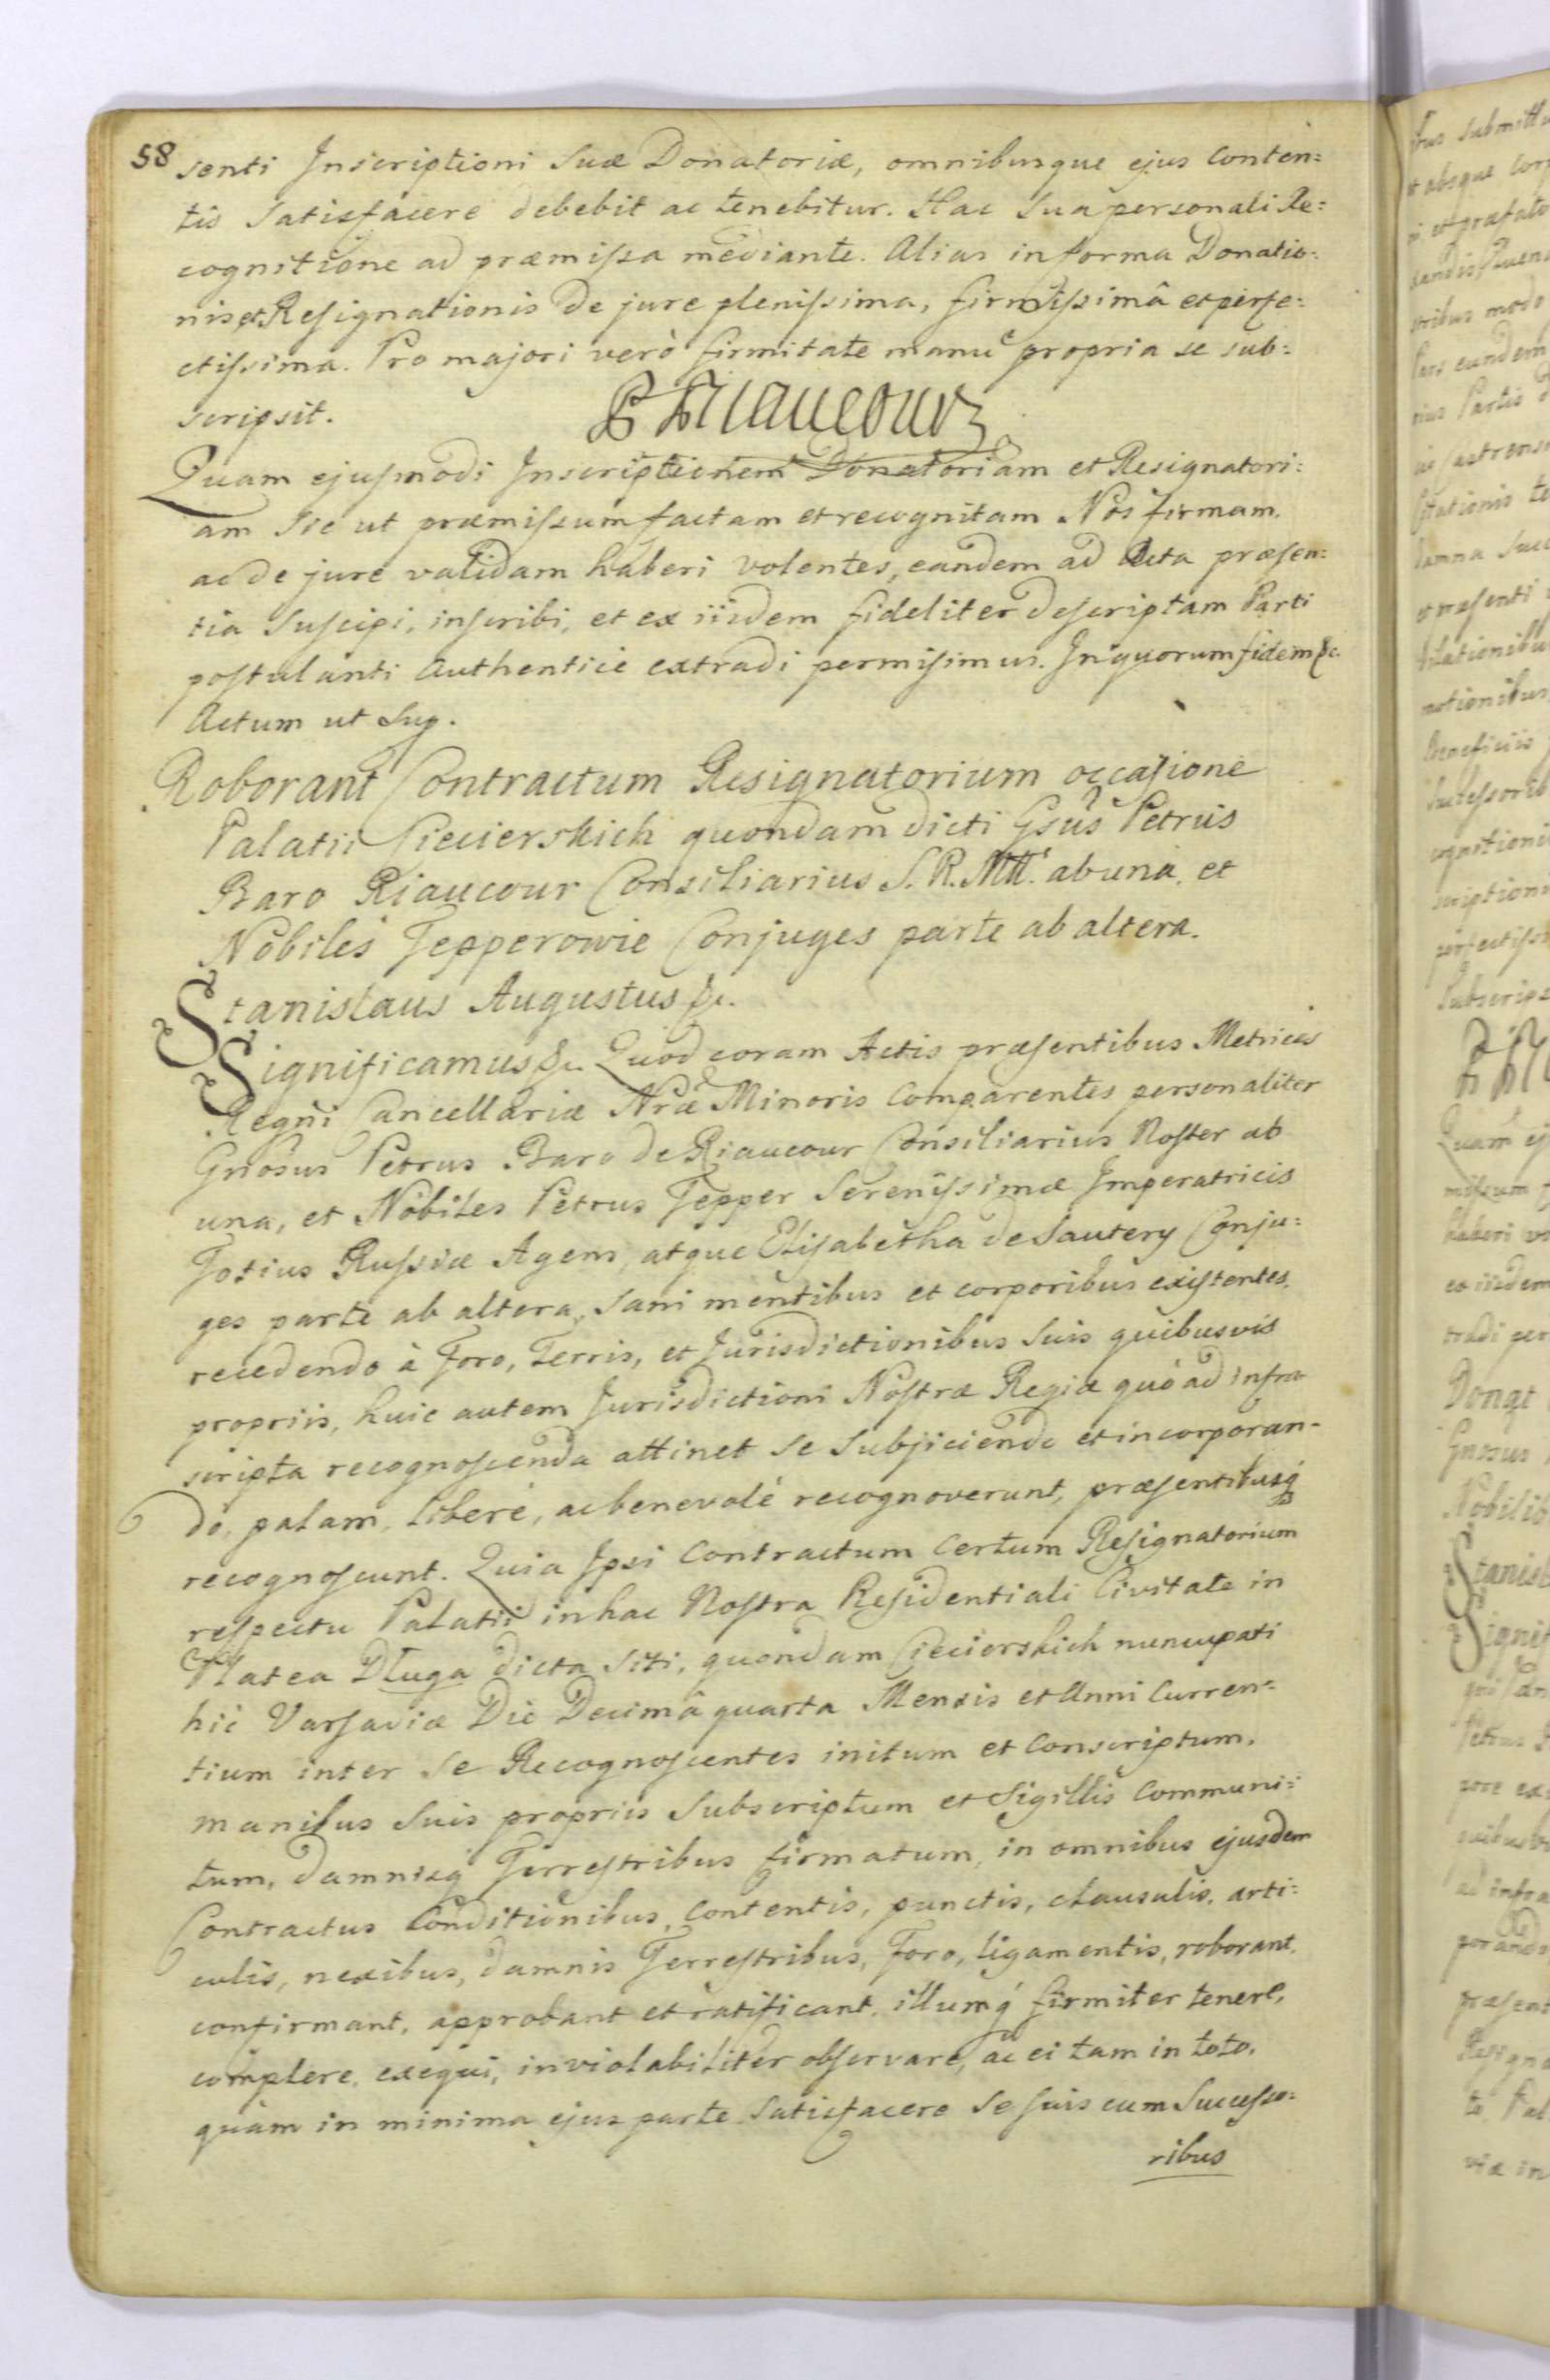 58 senti Inscriptioni Suæ Donatoriæ, omnibusque ejus Conten=
tis Satisfacere debebit ac tenebitur. Hac Sua personali Re=
cognitione ad præmissa mediante. Alias in forma Donatio=
nis et Resignationis de jure plenissima, firmissimâ et perfe=
ctissima. Pro majori verò firmitate manu propria se sub=
scripsit. P Riaucour
Quam ejusmodi Inscriptionem Donatoriam et Resignatori=
am Sic ut præmissum factam et recognitam Nos firmam
ac de jure validam haberi volentes, eandem ad Acta præsen=
tia Suscipi, inscribi, et ex iisdem fideliter descriptam Parti
postulanti Authenticè extradi permisimus. In quorum fidem &c.
Actum ut Sup.
Roborant Contractum Resignatorium occasione
Palatii Siecierskich quondam dicti Gsus Petrus
Baro Riaucour Consiliarius S. R. Mtt. ab una, et
Nobiles Tepperowie Conjuges parte ab altera.
Stanislaus Augustus &c.
Significamus &c. Quod coram Actis præsentibus Metrices
Regni Cancellariæ Nræ Minoris Comparentes personaliter
Gnosus Petrus Baro de Riaucour Consiliarius Noster ab
una, et Nobiles Petrus Tepper Serenissimæ Imperatricis
Totius Russiæ Agens, atque Elisabetha de Sautery Conju=
ges parte ab altera, Sani mentibus et corporibus existentes,
recedendo à Foro, Terris, et Jurisdictionibus Suis quibusvis
propriis, huic autem Jurisdictioni Nostræ Regiæ quò ad infra
scripta recognoscenda attinet Se Subjiciendo et incorporan-
do, palam, liberè, ac benevolè recognoverunt, præsentibusq́
recognoscunt. Quia Ipsi Contractum Certum Resignatorium
respectu Palatii in hac Nostra Residentiali Civitate in
Platea Długa dicta Siti, quondam Siecierskich nuncupati
hic Varsaviæ Die Decimâ quarta Mensis et Anni Curren=
tium inter Se Recognoscentes initum et Conscriptum,
manibus Suis propriis Subscriptum et Sigillis Communi=
tum, damnisq́ Terrestribus firmatum, in omnibus ejusdem
Contractus Conditionibus, Contentis, punctis, clausulis, arti=
culis, nexibus, damnis Terrestribus, Foro, ligamentis, roborant,
confirmant, approbant et ratificant, illumq́ firmiter tenere,
complere, exequi, inviolabiliter observare, ac ei tam in toto,
quàm in minima ejus parte Satisfacere Se Suis cum Successo=
ribus